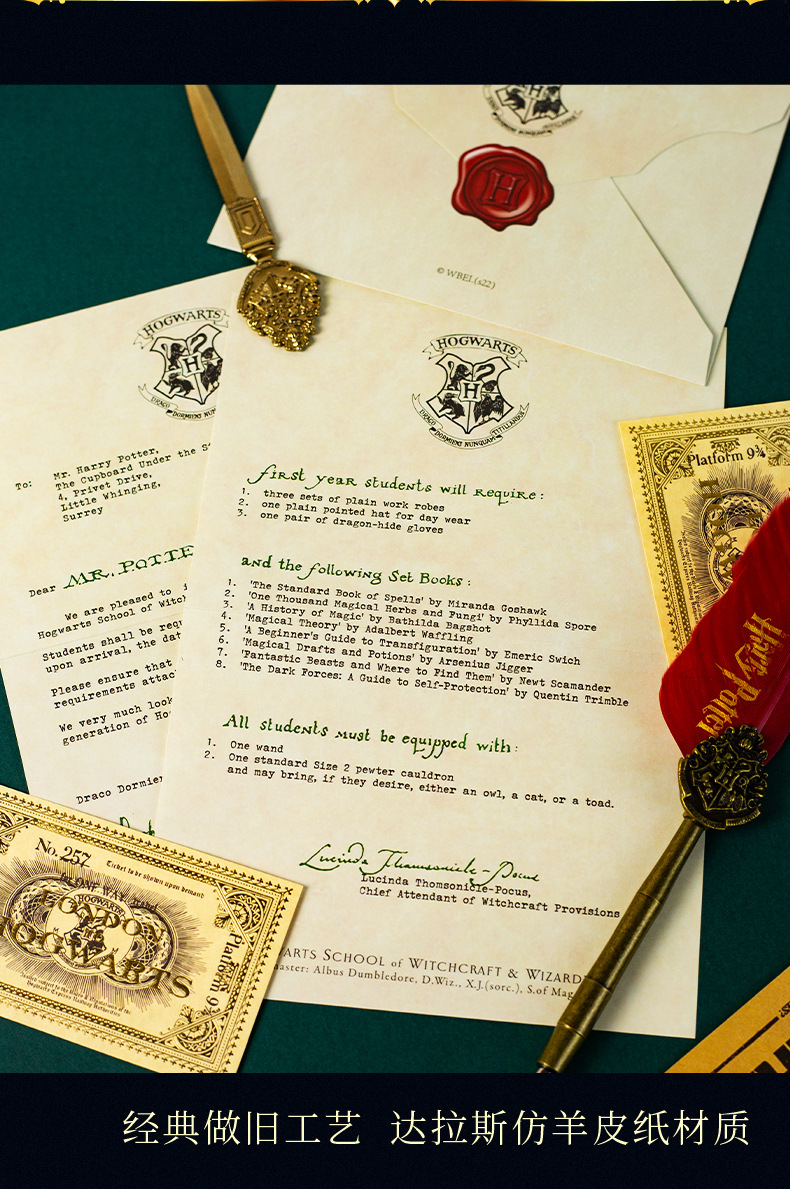 H
© WBEL(s22)
HOGWARTS
H
DRACO DORMIENS NUN
To: Mr. Harry Potter,
The Cupboard Under the S
4, Privet Drive,
Little Whinging,
Surrey
Dear MR. POTTE
We are pleased to i
Hogwarts School of Witch
Students shall be requ
upon arrival, the dat
Please ensure that
requirements attac
We very much look
generation of Ho
Draco Dormie
HOGWARTS
H
DRACO DORMIENS NUNQUAM TITILLANDUS
first year students will require:
1. three sets of plain work robes
2. one plain pointed hat for day wear
3. one pair of dragon-hide gloves
and the following Set Books:
1. 'The Standard Book of Spells' by Miranda Goshawk
2. 'One Thousand Magical Herbs and Fungi' by Phyllida Spore
3. 'A History of Magic' by Bathilda Bagshot
4. 'Magical Theory' by Adalbert Waffling
5. 'A Beginner's Guide to Transfiguration' by Emeric Swich
6. 'Magical Drafts and Potions' by Arsenius Jigger
7. 'Fantastic Beasts and Where to Find Them' by Newt Scamander
8. 'The Dark Forces: A Guide to Self-Protection' by Quentin Trimble
All students must be equipped with:
1. One wand
2. One standard Size 2 pewter cauldron
and may bring, if they desire, either an owl, a cat, or a toad.
Lucinda Thomsonicle-Pocus
Lucinda Thomsonicle-Pocus,
Chief Attendant of Witchcraft Provisions
ARTS SCHOOL of WITCHCRAFT & WIZARD
master: Albus Dumbledore, D.Wiz., X.J.(sorc.), S.of Mag
Platform 9¾
Harry Potter
No. 257
Ticket to be shown upon demand
LONDON
HOGWARTS
Platform 9
经典做旧工艺 达拉斯仿羊皮纸材质